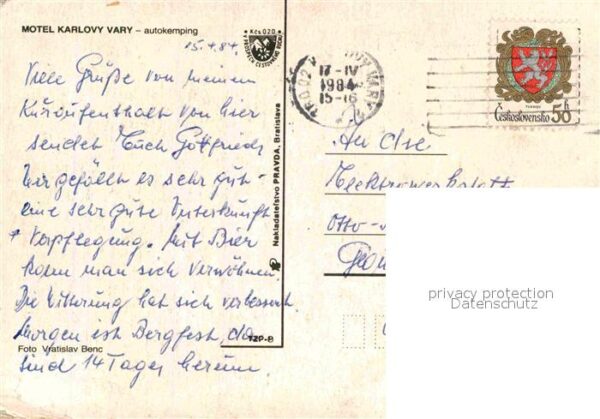 MOTEL KARLOVY VARY – autokemping
15.4.84.
Viele Grüße von meinem
Kuraufenthalt von hier
sendet Euch Gottfried
Mir gefällt es sehr gut
eine sehr gute Unterkunft
+ Verpflegung. Mit Bier
kann man sich verwöhnen.
Die Witterung hat sich verbessert
Morgen ist Bergfest, da
sind 14 Tage herum
Foto Vratislav Benc
TZP-B
Nakladateľstvo PRAVDA, Bratislava
Kčs 0,20
17-IV
1984
15-16
Československo
50 h
An die
Elektrowerkstatt
Otto-
privacy protection
Datenschutz